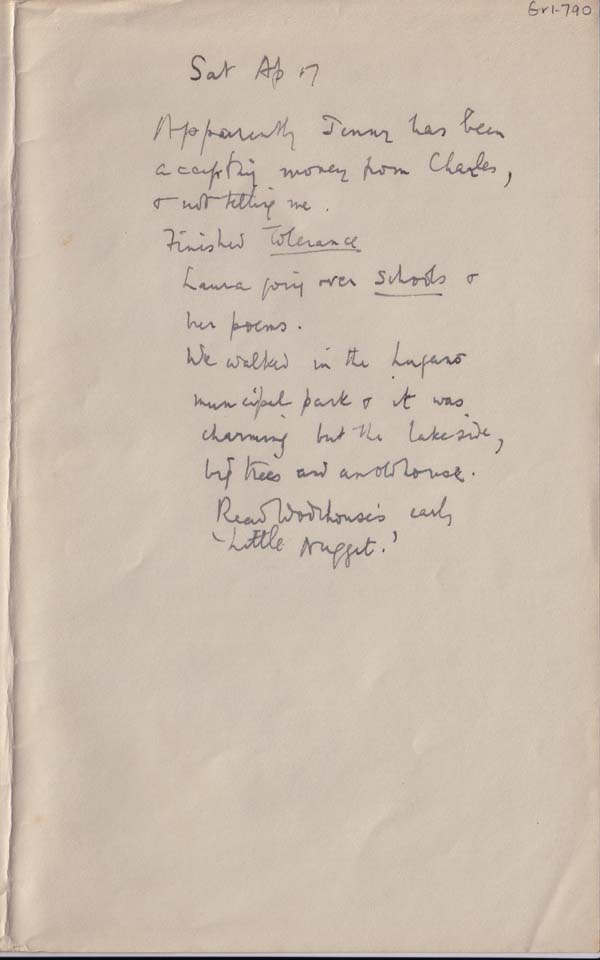 Gr1-790
Sat Ap 17
Apparently Jenny has been
accepting money from Charles,
& not telling me.
Finished Tolerance
Laura going over Schools &
her poems.
We walked in the Lugano
municipal park & it was
charming but the lakeside,
big trees and an old house.
Read Wodehouse's early
'Little Nugget.'